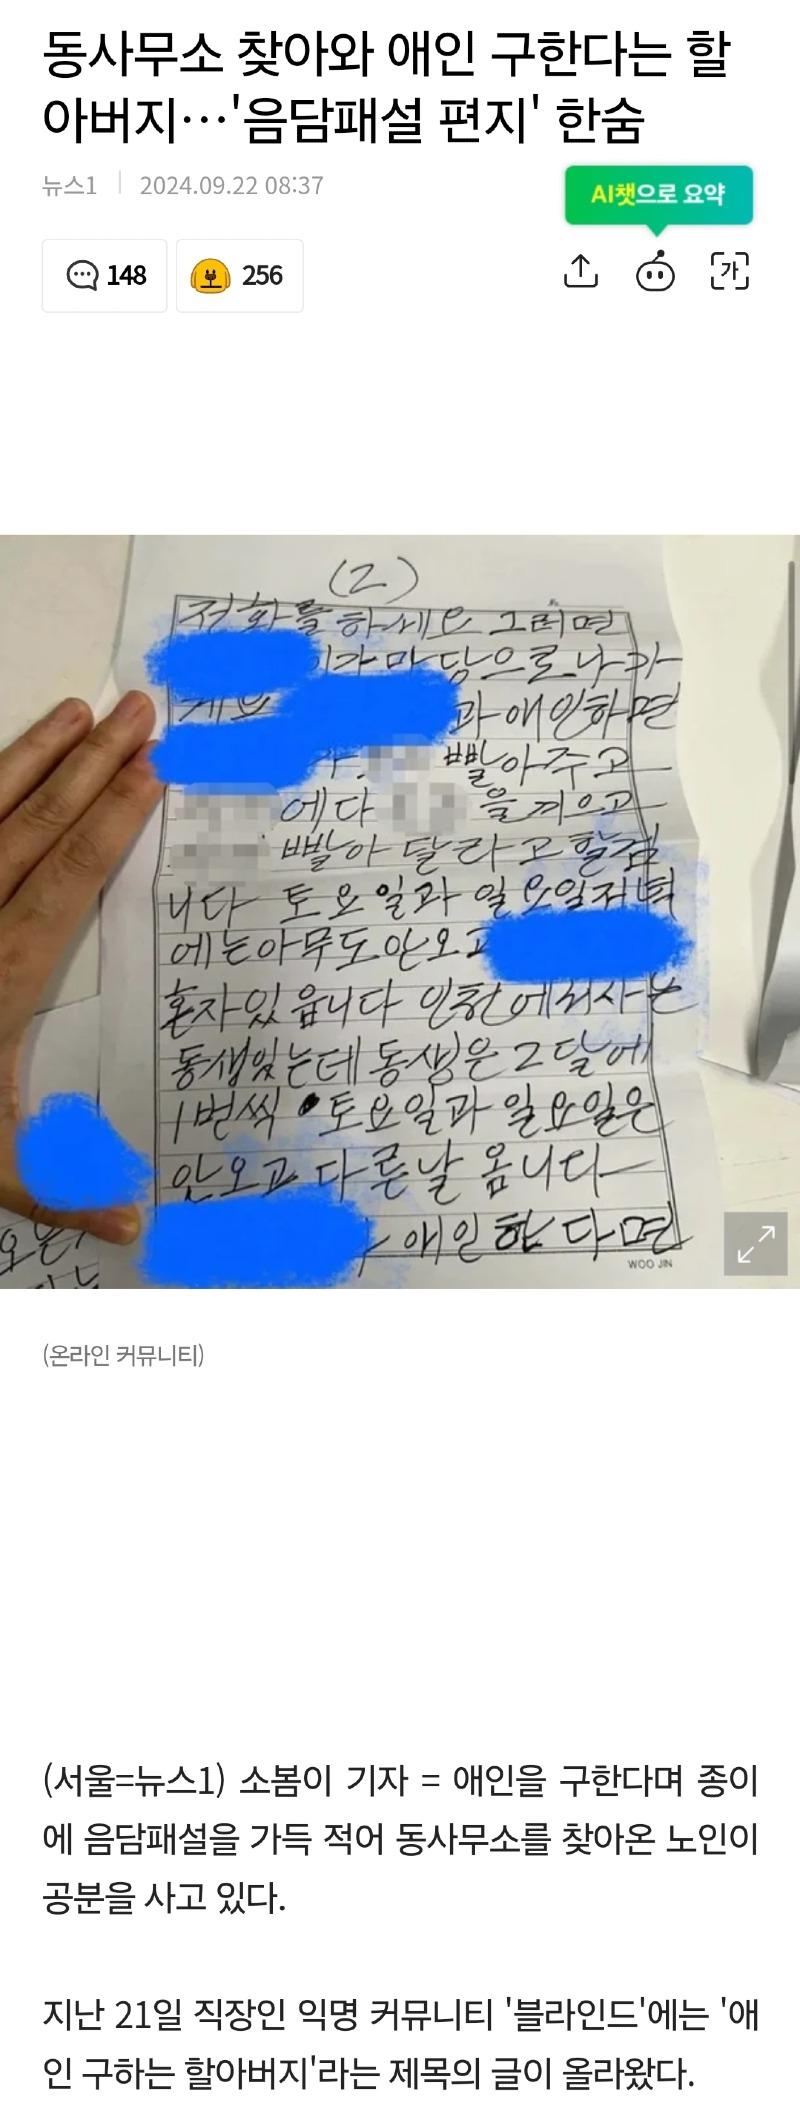 동사무소 찾아와 애인 구한다는 할
아버지…'음담패설 편지' 한숨
뉴스1 2024.09.22 08:37
AI챗으로 요약
148 256
가
(2)
전화를 하세요 그러면
이가 마당으로 나가
과 애인하면
빨아주고
에다 을 끼으고
빨아 달라고 할겁
니다 토요일과 일요일저녁
에는 아무도 안오고
혼자있읍니다 인천에서사는
동생있는데 동생은 2달에
1번씩 토요일과 일요일은
안오고 다른날 옵니다
애인한다면
WOO JIN
(온라인 커뮤니티)
(서울=뉴스1) 소봄이 기자 = 애인을 구한다며 종이
에 음담패설을 가득 적어 동사무소를 찾아온 노인이
공분을 사고 있다.
지난 21일 직장인 익명 커뮤니티 '블라인드'에는 '애
인 구하는 할아버지'라는 제목의 글이 올라왔다.